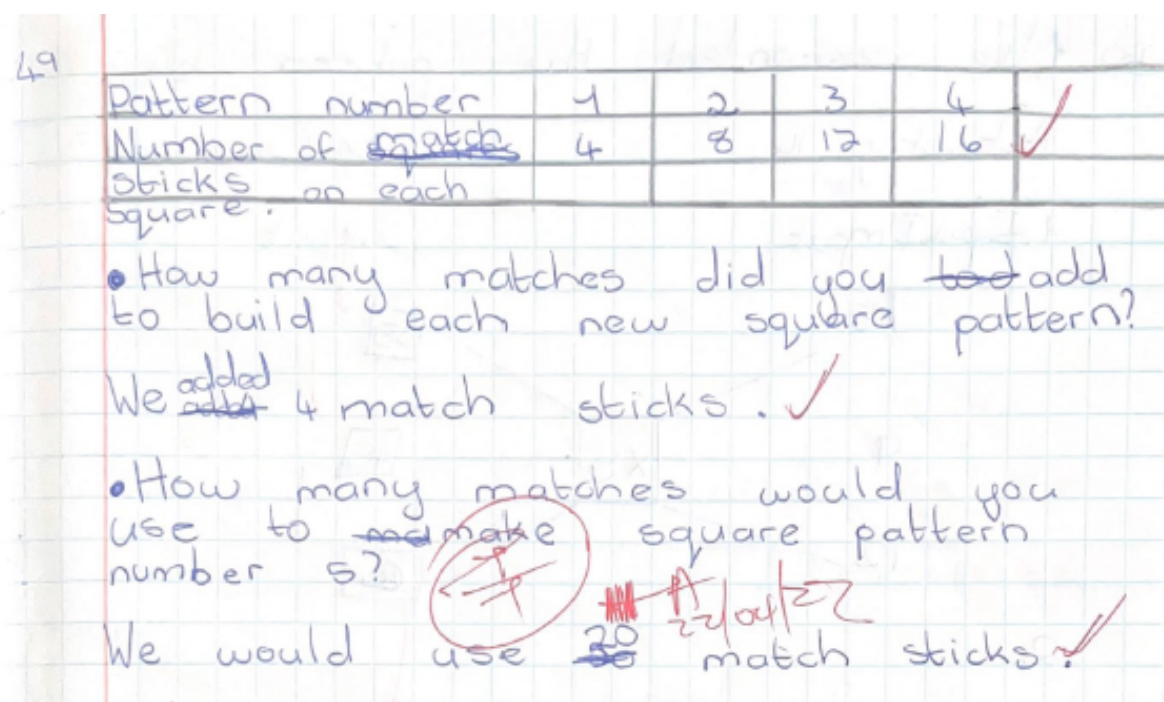 49
Pattern number 1 2 3 4
Number of match 4 8 12 16
sticks on each
square.
• How many matches did you add
to build each new square pattern?
We added 4 match sticks.
• How many matches would you
use to make square pattern
number 5?
22/04/22
We would use 20 match sticks.